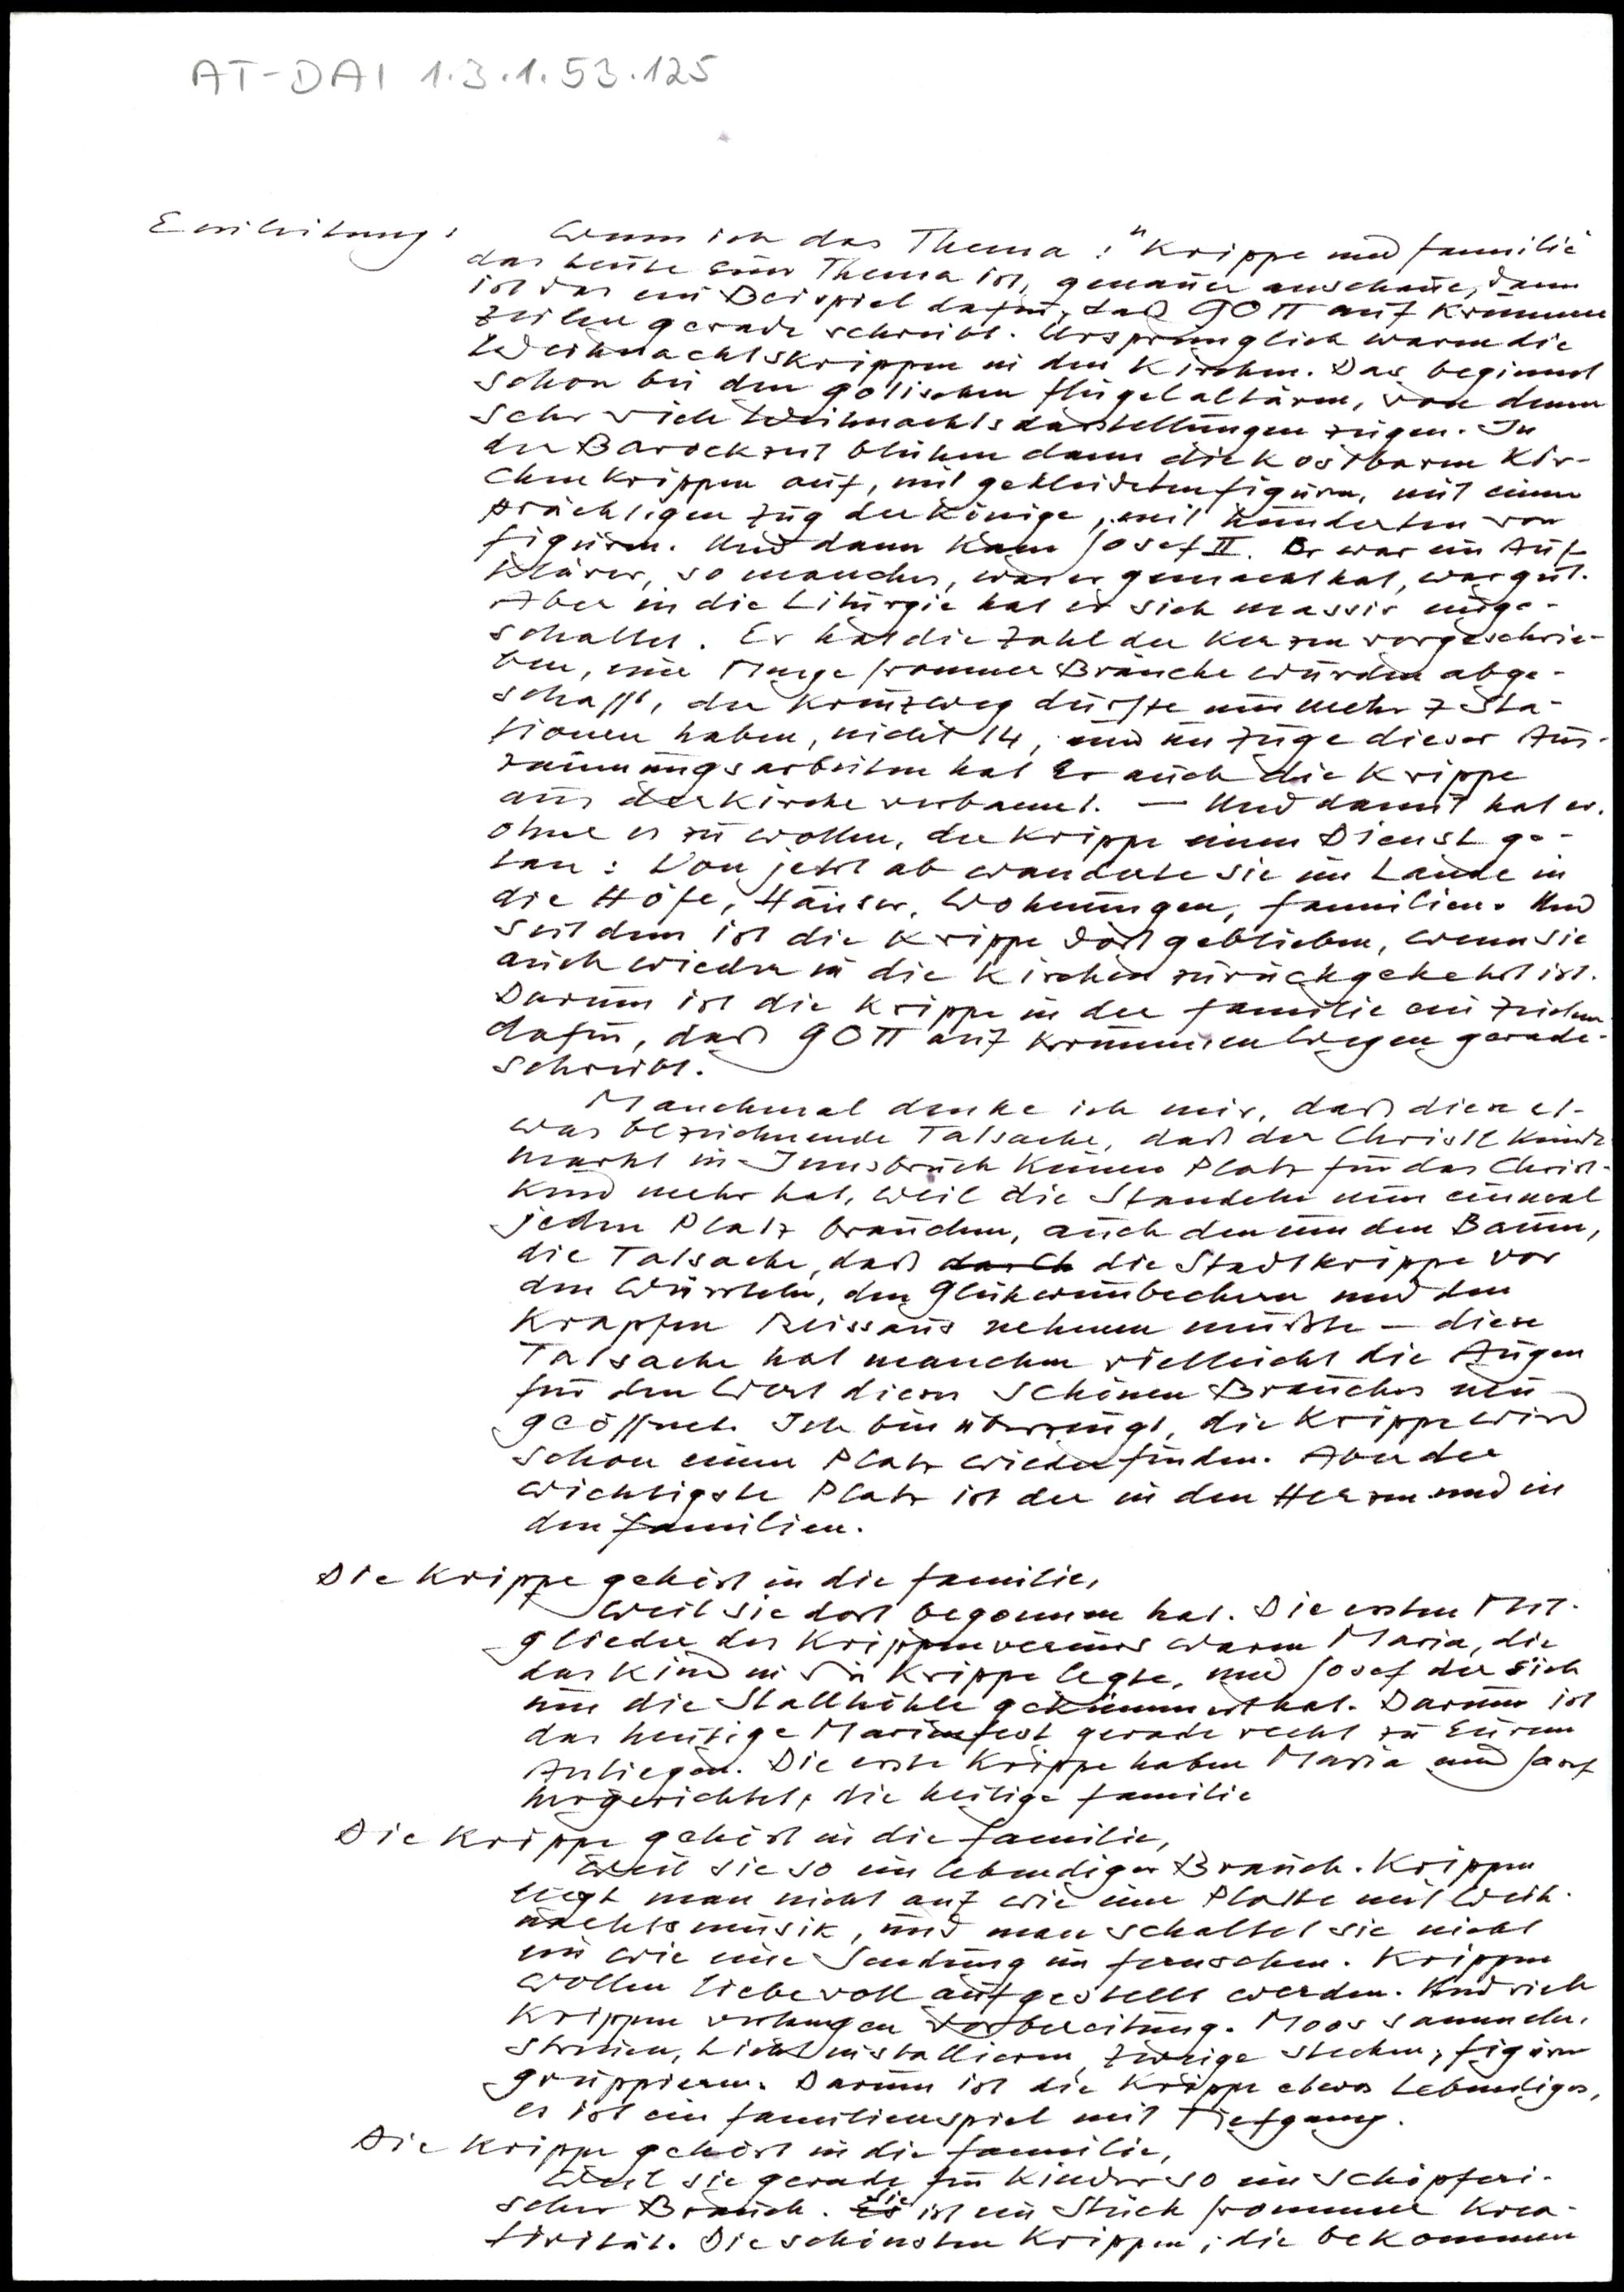 AT-DAI 1.3.1.53.125
Einleitung: Wenn ich das Thema: "Krippe und Familie
das heute euer Thema ist, genauer anschaue, dann
ist das ein Beispiel dafür, daß GOTT auf krummen
Zeilen gerade schreibt. Ursprünglich waren die
Weihnachtskrippen in den Kirchen. Das beginnt
schon bei den gotischen Flügelaltären, von denen
sehr viele Weihnachtsdarstellungen zeigen. In
der Barockzeit blühen dann die kostbaren Kir-
chenkrippen auf, mit gekleideten Figuren, mit einem
prächtigen Zug der Könige, mit hunderten von
Figuren. Und dann kam Josef II. Er war ein Auf-
klärer, so manches, was er gemacht hat, war gut.
Aber in die Liturgie hat er sich massiv einge-
schaltet. Er hat die Zahl der Kerzen vorgeschrie-
ben, eine Menge frommer Bräuche wurden abge-
schafft, der Kreuzweg durfte nunmehr 7 Sta-
tionen haben, nicht 14, und im Zuge dieser Aus-
räumungsarbeiten hat er auch die Krippe
aus der Kirche verbannt. — Und damit hat er,
ohne es zu wollen, der Krippe einen Dienst ge-
tan: Von jetzt ab wanderte sie im Lande in
die Höfe, Häuser, Wohnungen, Familien. Und
seitdem ist die Krippe dort geblieben, wenn sie
auch wieder in die Kirchen zurückgekehrt ist.
Darum ist die Krippe in der Familie ein Zeichen
dafür, daß GOTT auf krummen Wegen gerade
schreibt.
Manchmal denke ich mir, daß diese et-
was bezeichnende Tatsache, daß der Christkindl
markt in Innsbruck keinen Platz für das Christ-
kind mehr hat, weil die Standeln nun einmal
jeden Platz brauchen, auch den um den Baum,
die Tatsache, daß die Stadtkrippe vor
den Würsteln, den Glühweinbechern und den
Krapfen Reissaus nehmen mußte — diese
Tatsache hat manchen vielleicht die Augen
für den Wert dieses schönen Brauches neu
geöffnet. Ich bin überzeugt, die Krippe wird
schon einen Platz wiederfinden. Aber der
wichtigste Platz ist der in den Herzen und in
den Familien.
Die Krippe gehört in die Familie,
weil sie dort begonnen hat. Die ersten Mit-
glieder des Krippenvereins waren Maria, die
das Kind in die Krippe legte, und Josef der sich
um die Stallhöhle gekümmert hat. Darum ist
das heutige Marienfest gerade recht zu Eurem
Anliegen. Die erste Krippe haben Maria und Josef
hergerichtet, die heilige Familie
Die Krippe gehört in die Familie,
weil sie so ein lebendiger Brauch. Krippen
legt man nicht auf wie eine Platte mit Weih-
nachtsmusik, und man schaltet sie nicht
ein wie eine Sendung im Fernsehen. Krippen
wollen liebevoll aufgestellt werden. Und viele
Krippen verlangen Vorbereitung. Moos sammeln,
streuen, Licht installieren, Zweige stecken, Figuren
gruppieren. Darum ist die Krippe etwas Lebendiges,
es ist ein Familienspiel mit Tiefgang.
Die Krippe gehört in die Familie,
weil sie gerade für Kinder so ein schöpferi-
scher Brauch. Sie ist ein Stück frommer Krea-
tivität. Die schönsten Krippen, die bekommen